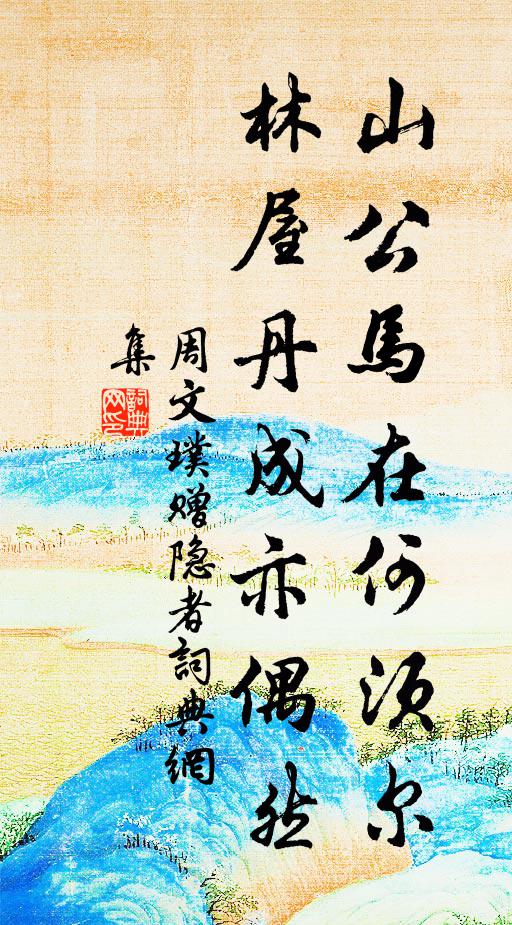 山公馬在何須尔
林屋丹成亦偶然
周文璞赠隐者詞典網
集
詞典网印